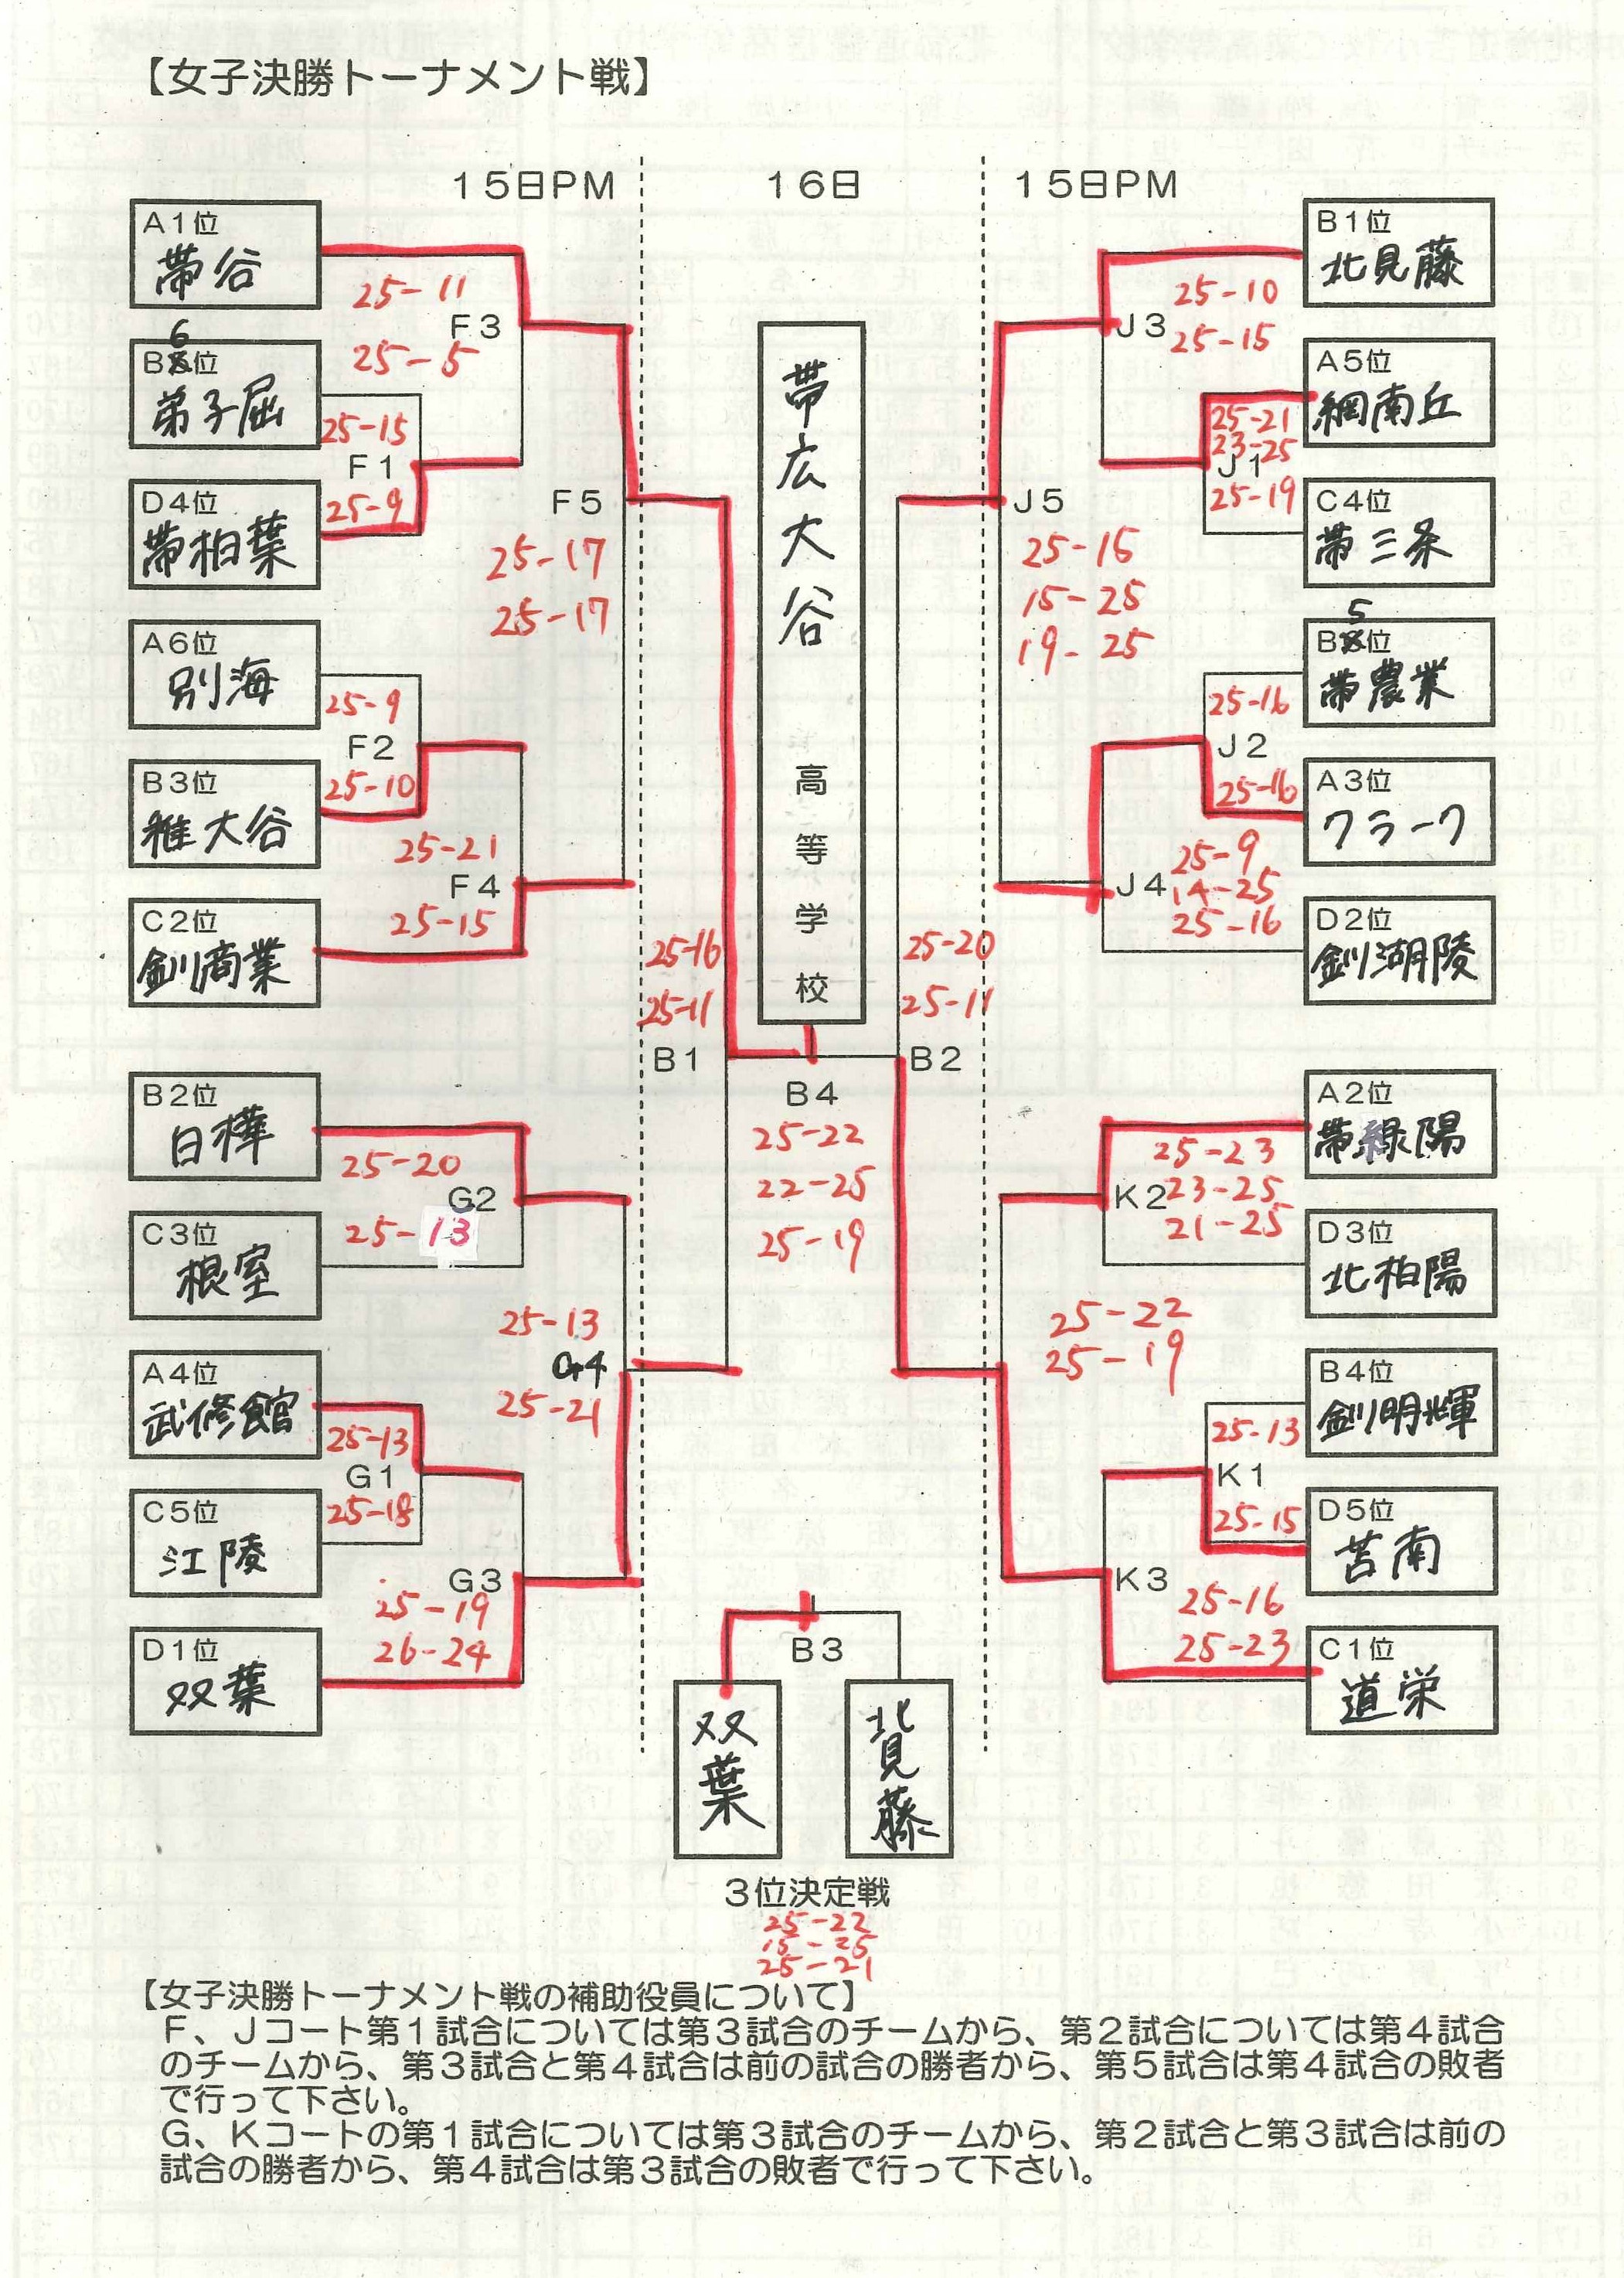 【女子決勝トーナメント戦】
15日PM
16日
15日PM
A1位
帯谷
25-11
F3
25-5
B6位
弟子屈
25-15
F1
25-9
D4位
帯柏葉
F5
25-17
25-17
A6位
別海
25-9
F2
25-10
B3位
稚大谷
25-21
F4
25-15
C2位
釧商業
25-16
25-11
B1
B2位
白樺
25-20
G2
25-13
C3位
根室
25-13
G4
25-21
A4位
武修館
25-13
G1
25-18
C5位
江陵
G3
25-19
26-24
D1位
双葉
帯広大谷高等学校
B4
25-22
22-25
25-19
B1位
北見藤
25-10
J3
25-15
A5位
網南丘
25-21
23-25
J1
25-19
C4位
帯三条
J5
25-15
15-25
19-25
B5位
帯農業
25-16
J2
25-16
A3位
クラーク
25-9
J4
14-25
25-16
D2位
釧湖陵
25-20
25-11
B2
A2位
帯緑陽
25-23
K2
23-25
21-25
D3位
北柏陽
25-22
25-19
B4位
釧明輝
25-13
K1
25-15
D5位
苫南
K3
25-16
25-23
C1位
道栄
B3
双葉
北見藤
3位決定戦
25-22
15-25
25-21
【女子決勝トーナメント戦の補助役員について】
F、Jコート第1試合については第3試合のチームから、第2試合については第4試合
のチームから、第3試合と第4試合は前の試合の勝者から、第5試合は第4試合の敗者
で行って下さい。
G、Kコートの第1試合については第3試合のチームから、第2試合と第3試合は前の
試合の勝者から、第4試合は第3試合の敗者で行って下さい。